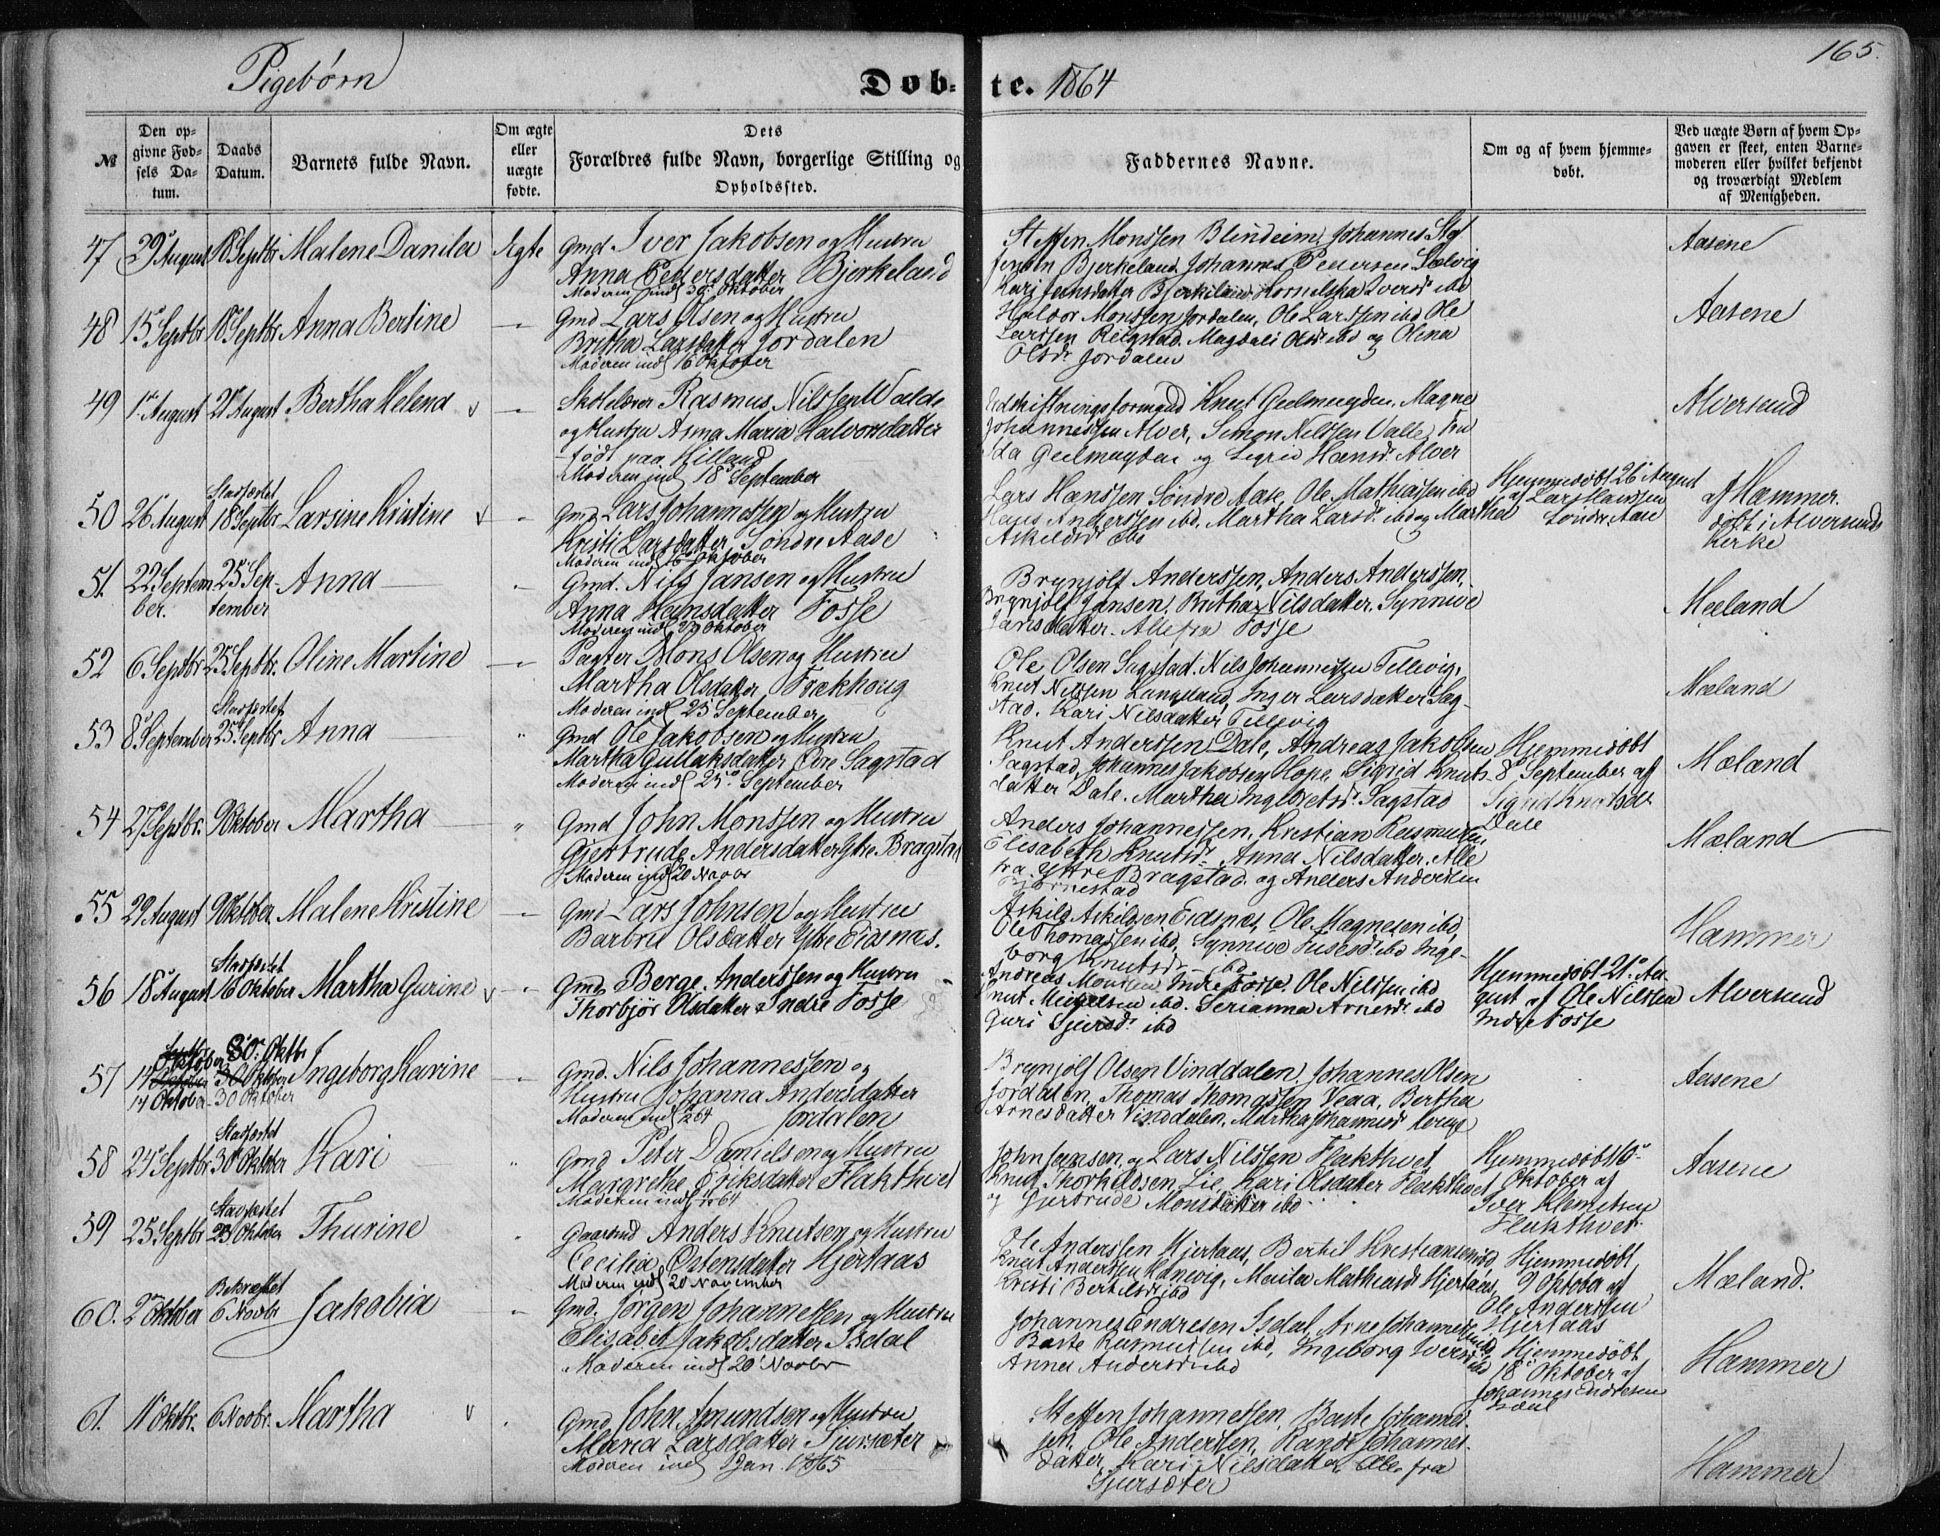 Pigebørn
Døbte. 1864
165.
№
Den opgivne Fødsels Datum.
Daabs Datum.
Barnets fulde Navn.
Om ægte eller uægte fødte.
Dets Forældres fulde Navn, borgerlige Stilling og Opholdssted.
Faddernes Navne.
Om og af hvem hjemmedøbt.
Ved uægte Børn af hvem Opgaven er skeet, enten Barnemoderen eller hvilket bekjendt og troværdigt Medlem af Menigheden.
47 29 August 18 Septbr Malene Danila Ægte
Gmd Iver Jakobsen og Hustru
Anna Pedersdatter Bjørkeland
Moderen indl 30 Oktober
Steffen Monssen Blindeim, Johannes Stef
fensen Bjørkeland, Johannes Pedersen Sælvig
Kari Jensdatter Bjørkeland ibd
Aasene
48 15 Septbr 18 Septbr Anna Bertine —
Gmd Lars Olsen og Hustru
Britha Larsdatter Jordalen
Moderen indl 16 Oktober
Haldor Monssen Jordalen, Ole Larssen ibd Ole
Larssen Reigstad. Magdali Olsdr ibd og Olena
Olsdr Jordalen
Aasene
49 1 August 21 August Bertha Helena v —
Skolelærer Rasmus Nilssen Walde
og Hustru Anna Maria Halvorsdatter
født paa Hilland
Moderen indl 18 September
Udskiftningsformand Knut Geelmuyden, Magne
Johannessen Alver, Simon Nilssen Valle, Fru
Ida Geelmuyden og Sigrid Hansdr Alver
Alversund
50 26 August Stadfæstet 18 Septbr Larsine Kristine v —
Gmd Lars Johannessen og Hustru
Kristi Larsdatter Søndre Aase
Moderen indl 16 Oktober
Lars Hanssen Søndre Aase, Ole Mathiassen ibd
Hans Anderssen ibd. Martha Larsdr ibd og Martha
Askildsdr ibd
Hjemmedøbt 26 August
af Lars Hanssen
Søndre Aase
af Hammer.
døbt i Alversunds
Kirke
51. 22 September. 25 September Anna —
Gmd. Nils Jansen og Hustru
Anna Hansdatter Fosse
Moderen indl 23 Oktober
Brynjolf Anderssen, Anders Anderssen,
Brynjolf Jansen. Britha Nilsdatter. Synnive
Jansdatter. Alle fra Fosse
Mæland
52 6 Septbr 25 Septbr. Oline Martine —
Pagter Mons Olsen og Hustru
Martha Olsdatter Frækhoug
Moderen indl 25 September
Ole Olsen Sagstad. Nils Johannessen Tellevig.
Knut Nilssen Langeland, Inger Larsdatter Sag-
stad. Kari Nilsdatter Tellevig
Mæland
53 8 September Stadfæstet 25 Septbr Anna —
Gmd Ole Jakobsen og Hustru
Martha Gullaksdatter Øvre Sagstad
Moderen indl 25 September
Knut Anderssen Dale, Andreas Jakobsen
Sagstad, Johannes Jakobsen Hope. Sigrid Knuts-
datter Dale. Martha Ingbretsdr Sagstad
Hjemmedøbt
8 September af
Sigrid Knutsdr
Dale
Mæland
54 27 Septbr. 9 Oktober Martha —
Gmd John Monssen og Hustru
Gjertrude Andersdatter Ytre Bragstad
Moderen indl 20 Novbr
Anders Johannessen, Kristian Rasmussen
Elisabeth Knutsdr Anna Nilsdatter. Alle
fra Yttre Bragstad. og Anders Anderssen
Bjørnestad
Mæland
55 29 August 9 Oktober. Malene Kristine —
Gmd Lars Johnsen og Hustru
Barbru Olsdatter Ytre Eidsnæs.
Askild Askildsen Eidsnæs, Ole Magnesen ibd,
Ole Thomassen ibd, Synnive ibd Inge-
borg Knutsdr ibd
Hammer
56 18 August Stadfæstet 16 Oktober Martha Gurine v —
Gmd. Berge Anderssen og Hustru
Thorbjør Olsdatter Indre Fosse
Andreas Monssen Indre Fosse, Ole Nilssen ibd
Knut Mugaasen ibd. Serianna Arnesdr ibd
Guri ibd
Hjemmedøbt 21 Au-
gust af Ole Nilssen
Indre Fosse
Alversund
57 14 Oktober 30 Oktbr Ingeborg Karine —
14 Oktober 30 Oktober
Gmd. Nils Johannessen og
Hustru Johanna Andersdatter
Moderen indl Jordalen
Brynjolf Olsen Vinddalen. Johannes Olsen
Jordalen, Thomas Thomassen Veaa, Bertha
Arnesdatter Vinddalen, Martha Johannesdr
Aasene
58 24 Septbr. Stadfæstet 30 Oktober Kari —
Gmd Peter Danielsen og Hustru
Margrethe Eriksdatter Flakthvet
Moderen indl
John Jansen og Lars Nilssen Flakthvet,
Knut Thorkildsen Lie, Kari Olsdatter Flakthvet
og Gjertrude Monsdatter ibd
Hjemmedøbt 16
Oktober af
Iver Klemetsen
Flakthvet
Aasene
59 25 Septbr Stadfæstet 23 Oktober Thurine
Gaardmd Anders Knutsen og Hustru
Cecilia Østensdatter Hjertaas
Moderen indl 20 November
Ole Anderssen Hjertaas, Bertil Kristiansen ibd
Knut Anderssen Hanvig, Marila Mathiasdr Hjertaas,
Kristi Bertilsdr ibd
Hjemmedøbt
9 Oktober af
Ole Anderssen
Hjertaas
Mæland.
60. 2 Oktober Bekræftet 6 Novbr Jakobia —
Gmd. Jørgen Johannessen og Hustru
Elisabet Jakobsdatter Isdal
Moderen indl 20 Novbr
Johannes Endresen Isdal, Arne Johannessen ibd
Baste Rasmussen ibd, Ingeborg Iversdr ibd
Anna Andersdr ibd
Hjemmedøbt
18 Oktober af
Johannes Endresen
Isdal
Hammer
61. 11 Oktbr. 6 Novbr. Martha v
Gmd. John Amundsen og Hustru
Maria Larsdatter Tjursæter
Moderen indl Jan. 1865
Steffen Johannessen, Baste Johannes-
sen, Ole Anderssen, Randi Johannes-
datter, Kari Nilsdatter, Alle fra
Tjursæter
Hammer